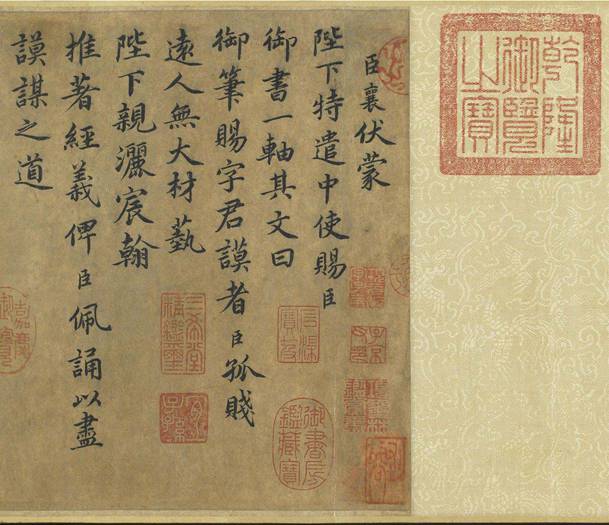 乾隆
御覽
之寶
臣襄伏蒙
陛下特遣中使賜臣
御書一軸其文曰
御筆賜字君謨者臣孤賤
遠人無大材藝
陛下親灑宸翰
推著經義俾臣佩誦以盡
謨謀之道
御書房
鑑藏寶
三希堂
精鑑璽
宜子孫
嘉慶
御覽